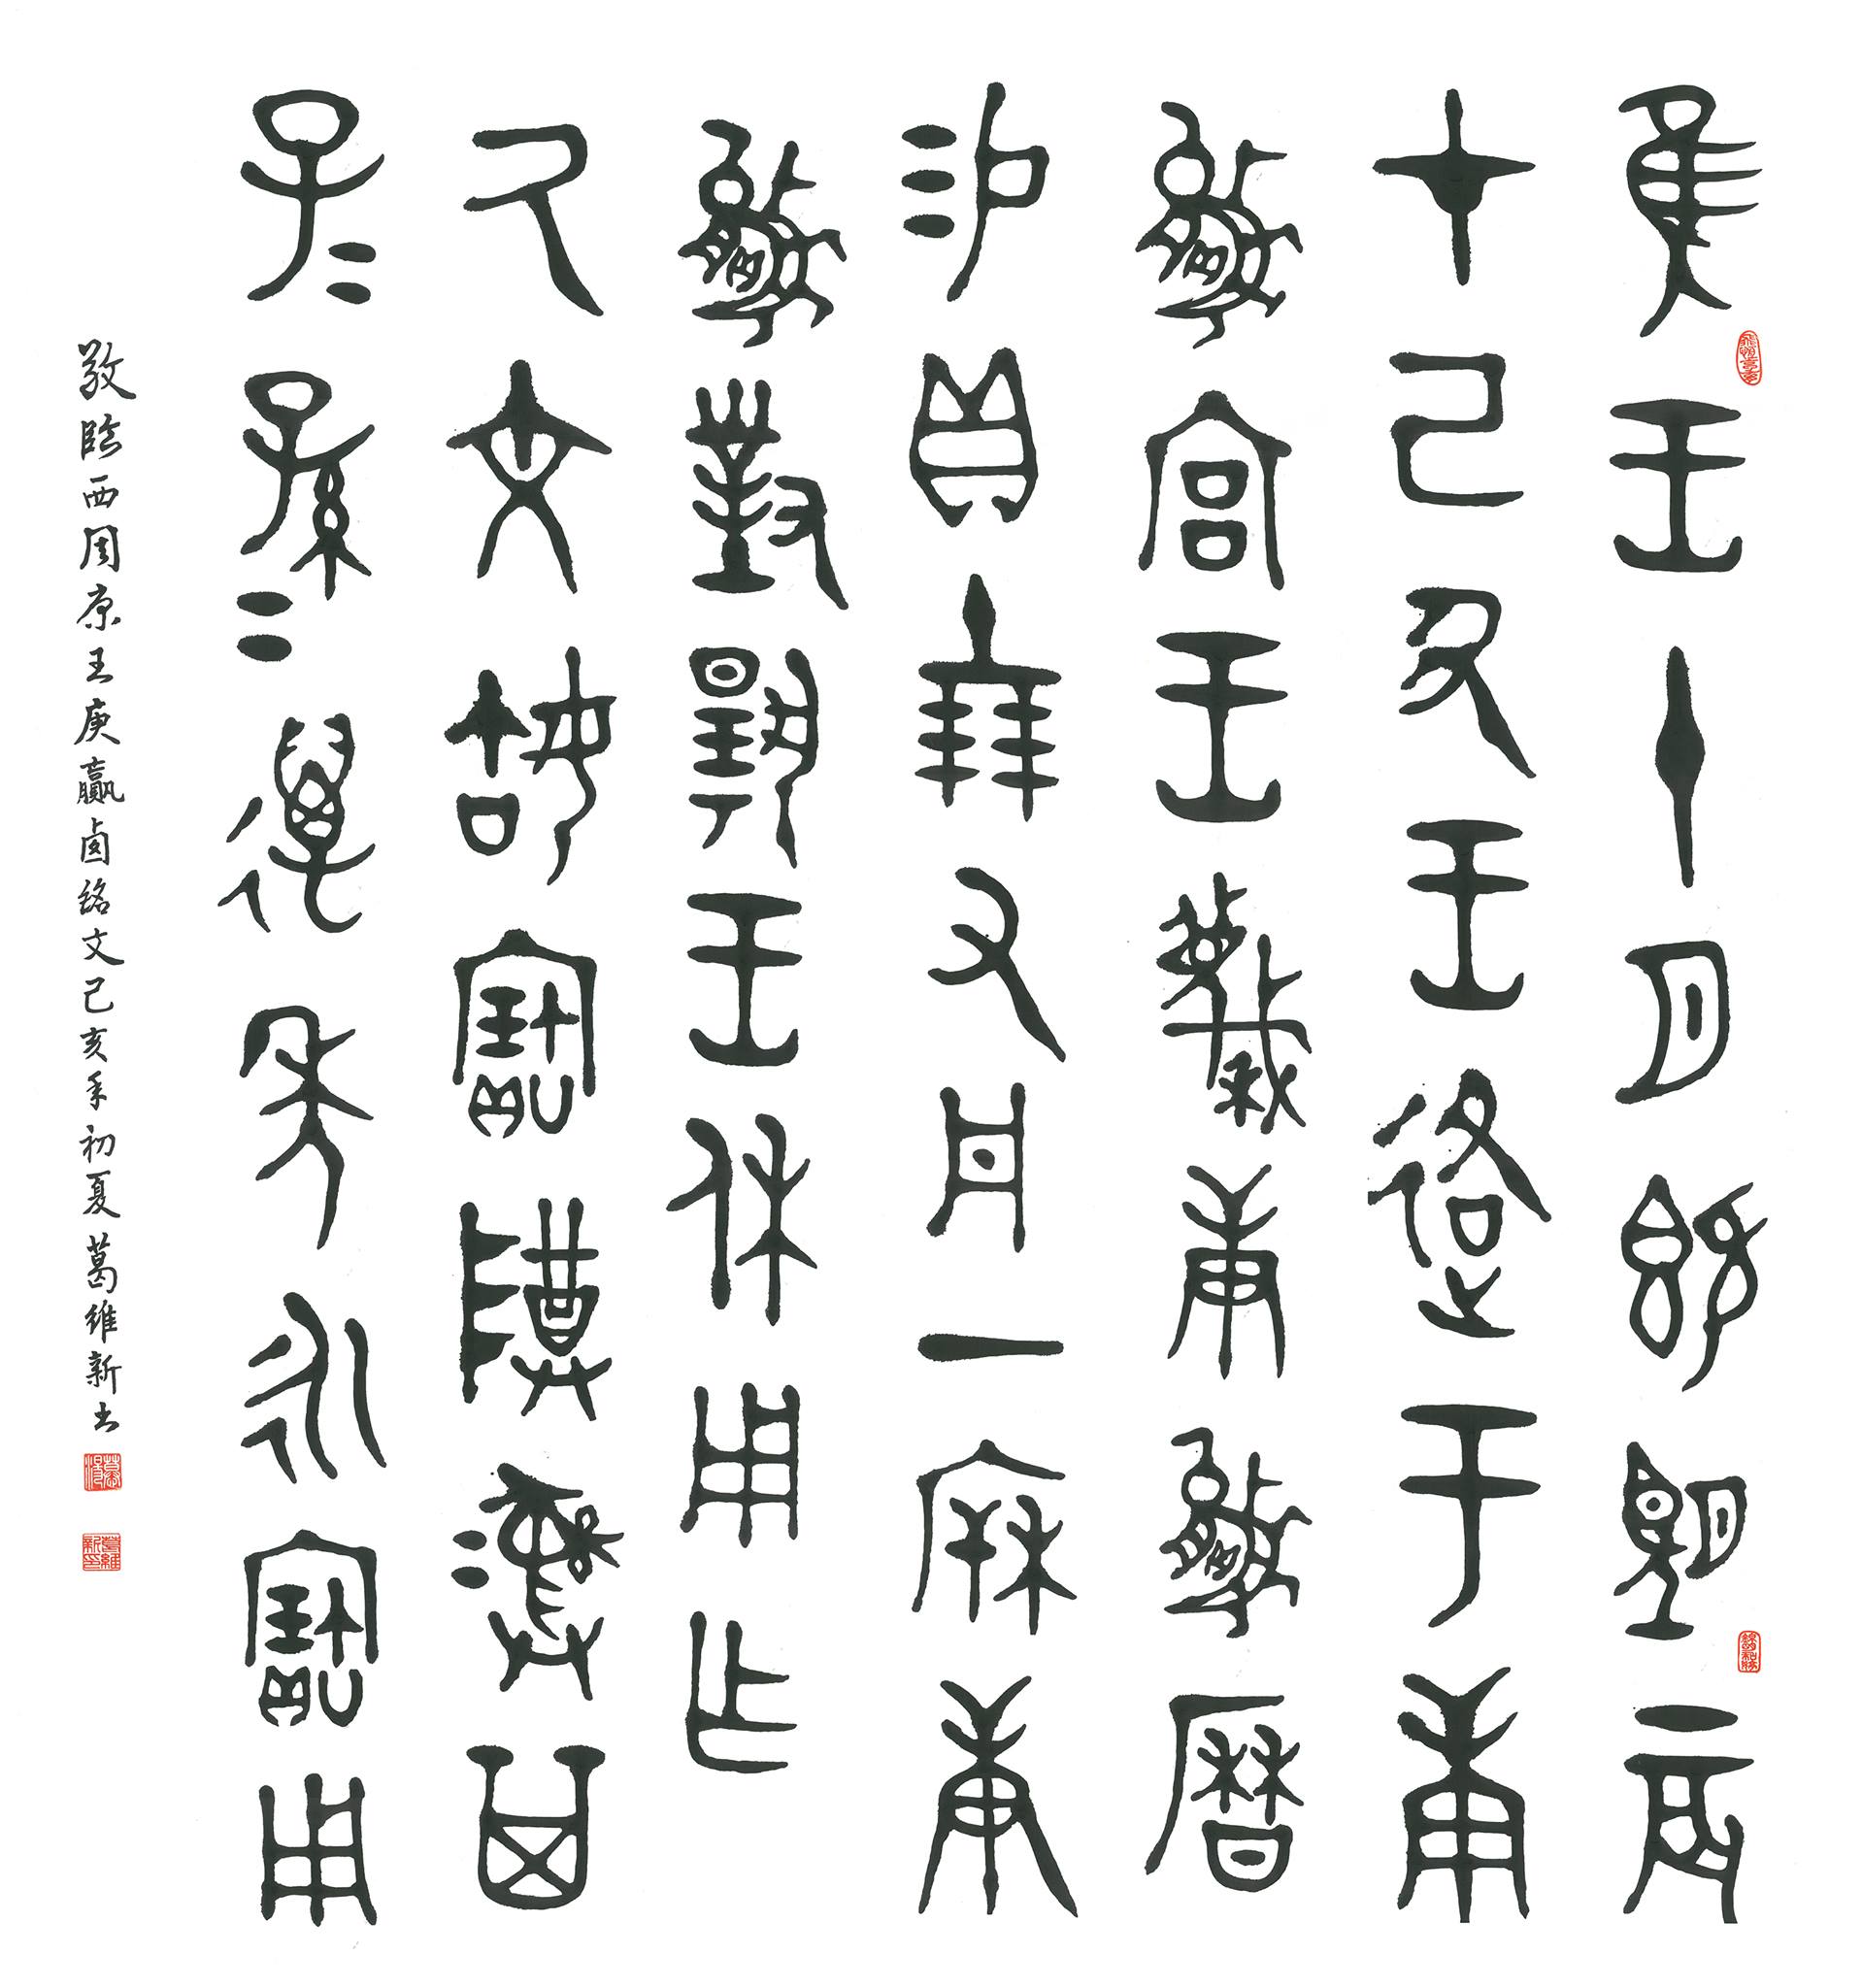 隹王十月既望辰
才己丑王各于庚
嬴宮王蔑庚嬴曆
易貝十朋又丹一㭒庚
嬴對揚王休用乍
氒文姑寶尊彝其
子=孫=萬年永寶用
敬臨西周康王庚嬴卣銘文己亥年初夏葛維新书